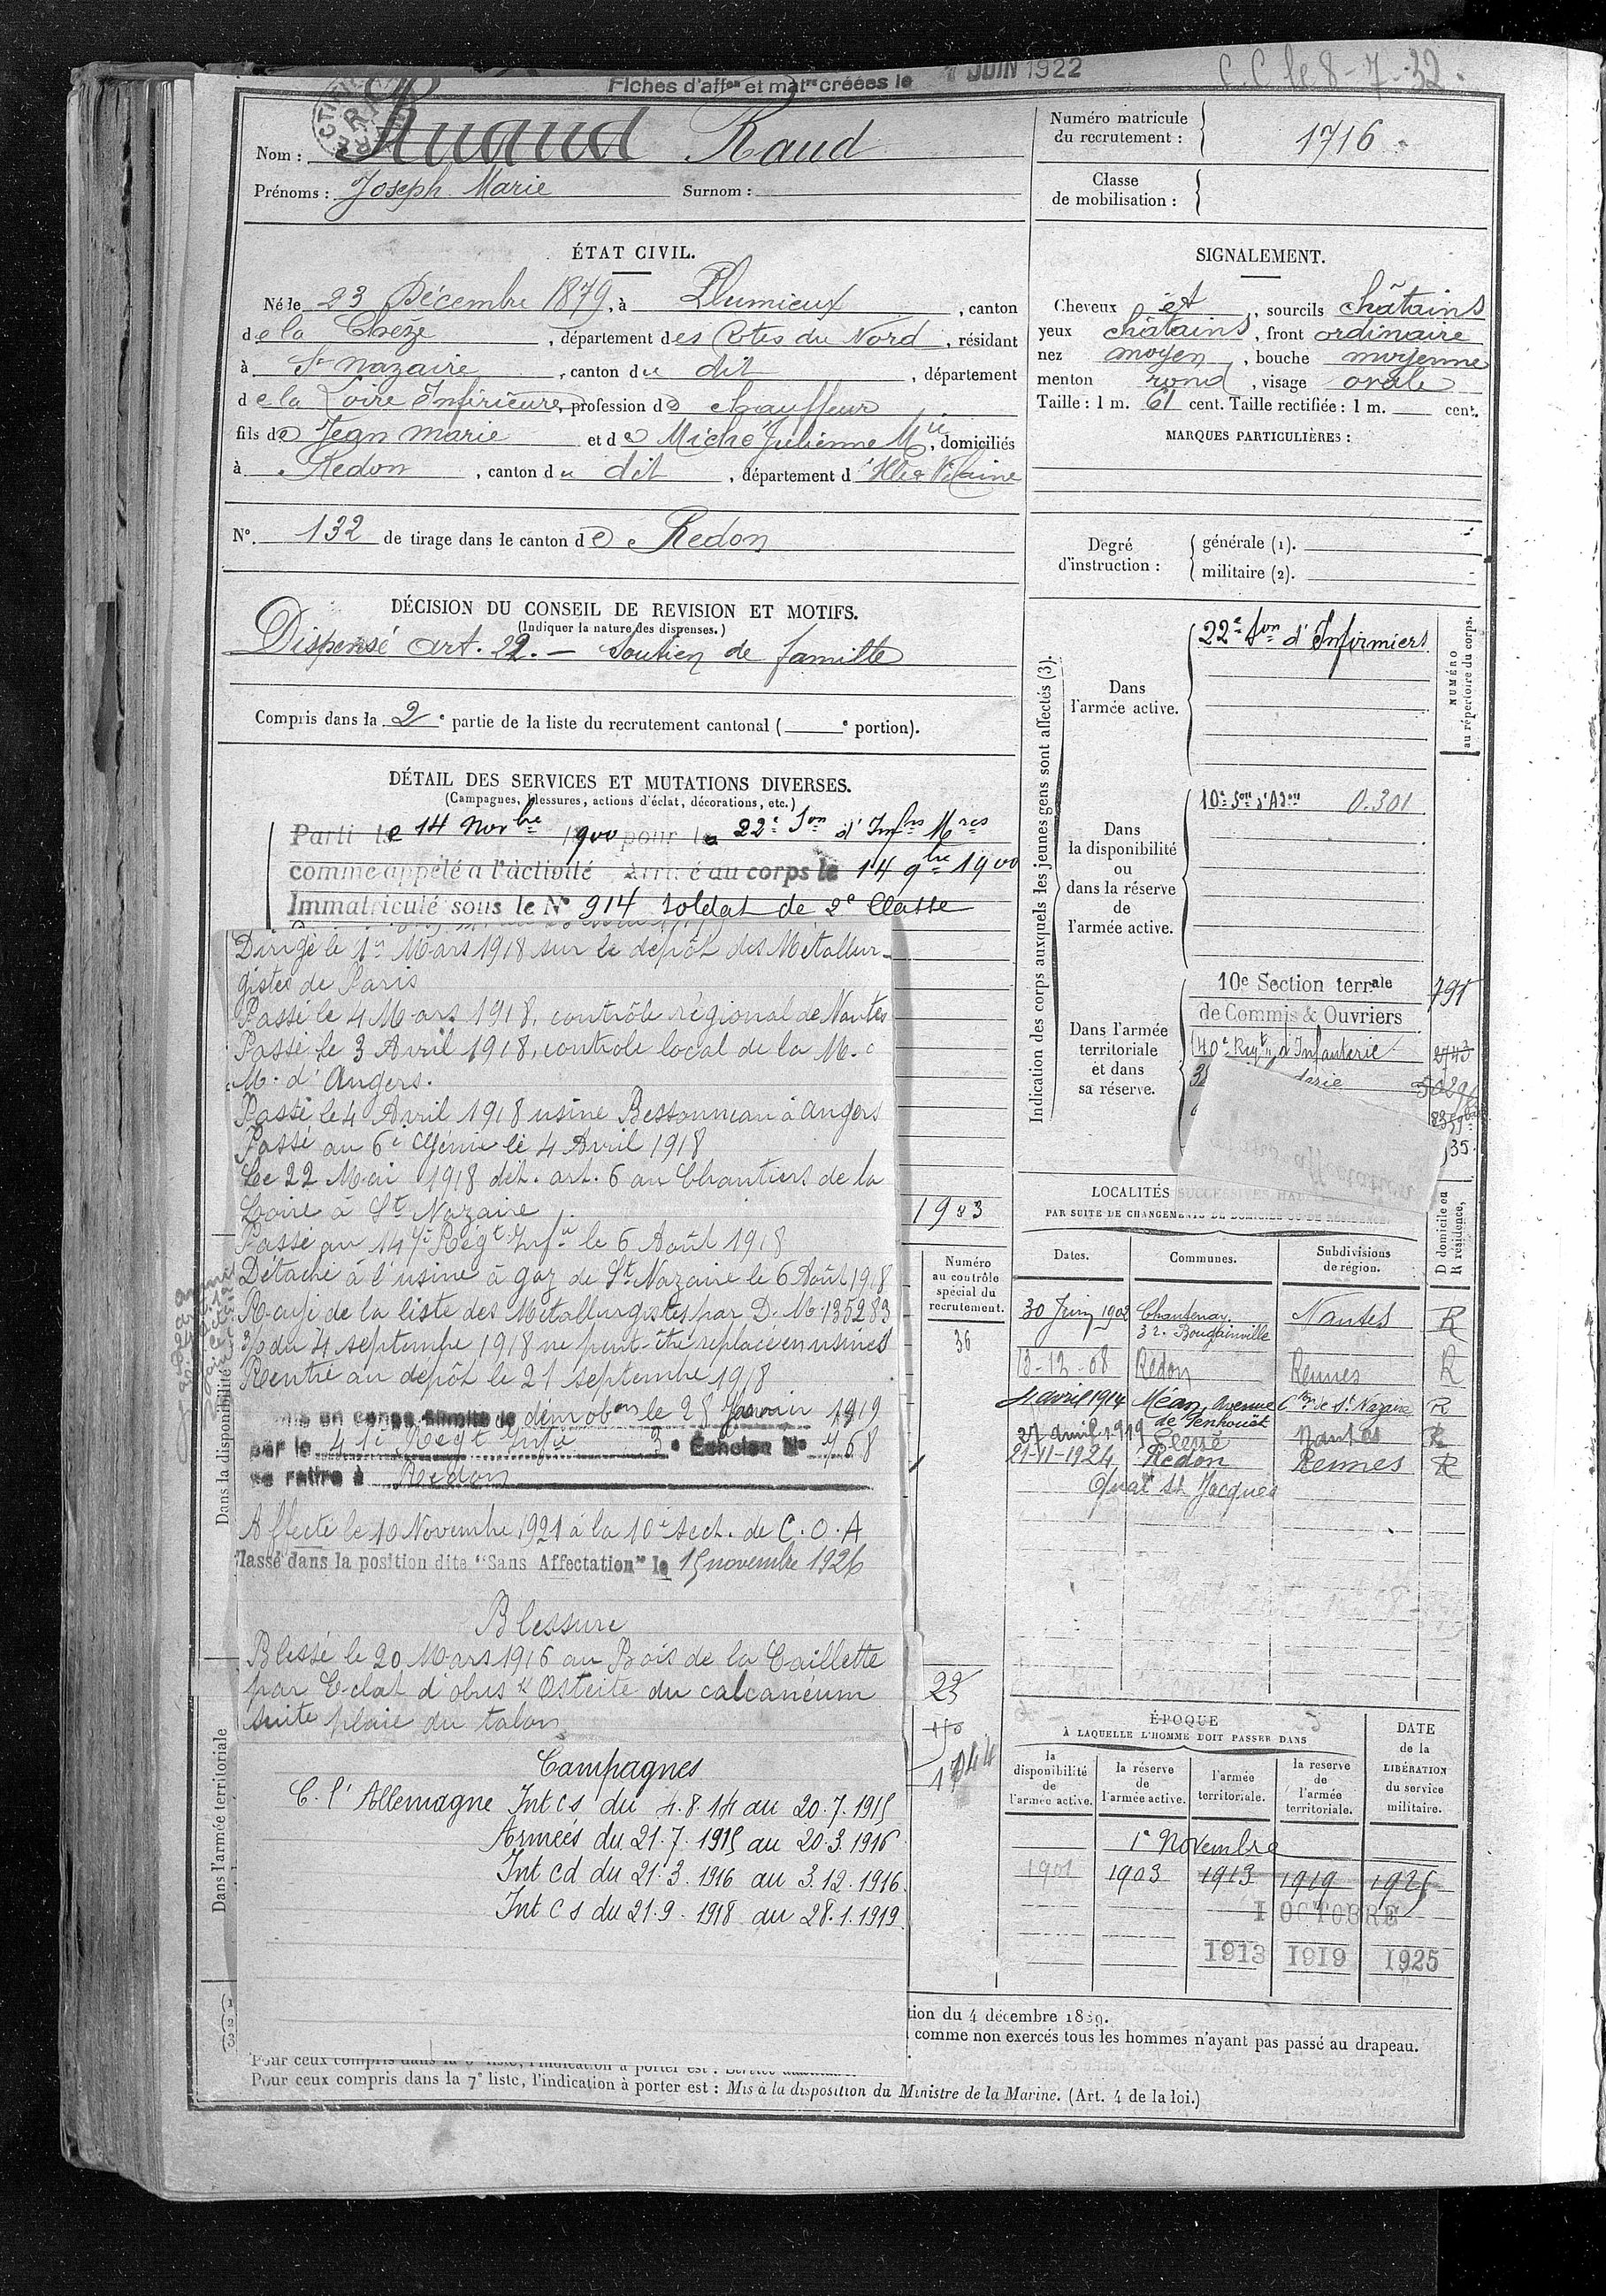 Fiches d'affon et matre créées le 1 JUIN 1922
C.C. le 8-7-32.
Nom : Ruaud Raud
Prénoms : Joseph Marie Surnom :
Numéro matricule
du recrutement : 1716
Classe
de mobilisation :
ÉTAT CIVIL.
Né le 23 Décembre 1879, à Plumieux, canton
de la Chèze, département des Côtes du Nord, résidant
à St Nazaire, canton du dit, département
de la Loire Inférieure, profession de chauffeur
fils de Jean Marie et de Miché Julienne Mie, domiciliés
à Redon, canton du dit, département d'Ille & Vilaine
SIGNALEMENT.
Cheveux et, sourcils châtains
yeux châtains, front ordinaire
nez moyen, bouche moyenne
menton rond, visage ovale
Taille : 1 m. 61 cent. Taille rectifiée : 1 m. cent.
MARQUES PARTICULIÈRES :
N°. 132 de tirage dans le canton de Redon
Degré
d'instruction :
générale (1).
militaire (2).
DÉCISION DU CONSEIL DE REVISION ET MOTIFS.
(Indiquer la nature des dispenses.)
Dispensé art. 22. — Soutien de famille
Compris dans la 2e partie de la liste du recrutement cantonal ( e portion).
DÉTAIL DES SERVICES ET MUTATIONS DIVERSES.
(Campagnes, blessures, actions d'éclat, décorations, etc.)
Parti le 14 Novbre 1900 pour la 22e Son d'Infrs Mres
comme appelé à l'activité Arrivé au corps le 14 9bre 1900
Immatriculé sous le N° 914 soldat de 2e Classe
Dirigé le 1er Mars 1918 sur le dépôt des Métallur-
gistes de Paris
Passé le 4 Mars 1918, contrôle régional de Nantes
Passé le 3 Avril 1918, controle local de la M.
M. d'Angers.
Passé le 4 Avril 1918 usine Bessonneau à Angers
Passé au 6e Génie le 4 Avril 1918
Le 22 Mai 1918 dét. art. 6 au Chantiers de la
Loire à St Nazaire
Passé au 147e Régt Infie le 6 Août 1918
Détaché à l'usine à gaz de St Nazaire le 6 Août 1918
Rayé de la liste des Métallurgistes par D.M. 135283
3/p du 4 septembre 1918 ne peut-être replacé en usines
Rentré au dépôt le 21 septembre 1918
en congé illimité de démobon le 28 Janvier 1919
par le 41e Regt Infie 3e Echelon N° 768
se retire à Redon
Affecté le 10 Novembre 1921 à la 10e sect. de C.O.A
Classé dans la position dite "Sans Affectation" le 15 novembre 1926
Blessure
Blessé le 20 Mars 1916 au Bois de la Caillette
par Eclat d'obus & Ostéite du calcanéum
suite plaie du talon
Campagnes
C. l'Allemagne Int cs du 4.8.14 au 20.7.1915
Armées du 21.7.1915 au 20.3.1916
Int cd du 21.3.1916 au 3.12.1916.
Int cs du 21.9.1918 au 28.1.1919.
Dans la disponibilité
Dans l'armée territoriale
1903
Numéro
au contrôle
spécial du
recrutement.
36
Indication des corps auxquels les jeunes gens sont affectés (3).
NUMÉRO
au répertoire du corps.
Dans
l'armée active.
22e Son d'Infirmiers
Dans
la disponibilité
ou
dans la réserve
de
l'armée active.
10e Son d'Adon 0.301
Dans l'armée
territoriale
et dans
sa réserve.
10e Section terrale
de Commis & Ouvriers
791
40e Regt d'Infanterie 2743
35
LOCALITÉS SUCCESSIVES
PAR SUITE DE CHANGEMENTS DE DOMICILE OU DE RÉSIDENCE.
D domicile ou
R résidence.
Dates. Communes. Subdivisions
de région.
30 Juin 1902 Chantenay Nantes R
32 r. Bougainville
13-12-08 Redon Rennes R
4 avril 1914 Méan, Avenue St Nazaire R
de Penhouët
27 Avril 1919 Plessé Nantes R
21-11-1924 Redon Rennes R
Quai St Jacques
ÉPOQUE
À LAQUELLE L'HOMME DOIT PASSER DANS
DATE
de la
LIBÉRATION
du service
militaire.
la
disponibilité
de
l'armée active.
la réserve
de
l'armée active.
l'armée
territoriale.
la reserve
de
l'armée
territoriale.
1e Novembre
1901 1903 1913 1919 1925
1 OCTOBRE
1913 1919 1925
tion du 4 décembre 1889.
comme non exercés tous les hommes n'ayant pas passé au drapeau.
Pour ceux compris dans la 7e liste, l'indication à porter est : Mis à la disposition du Ministre de la Marine. (Art. 4 de la loi.)